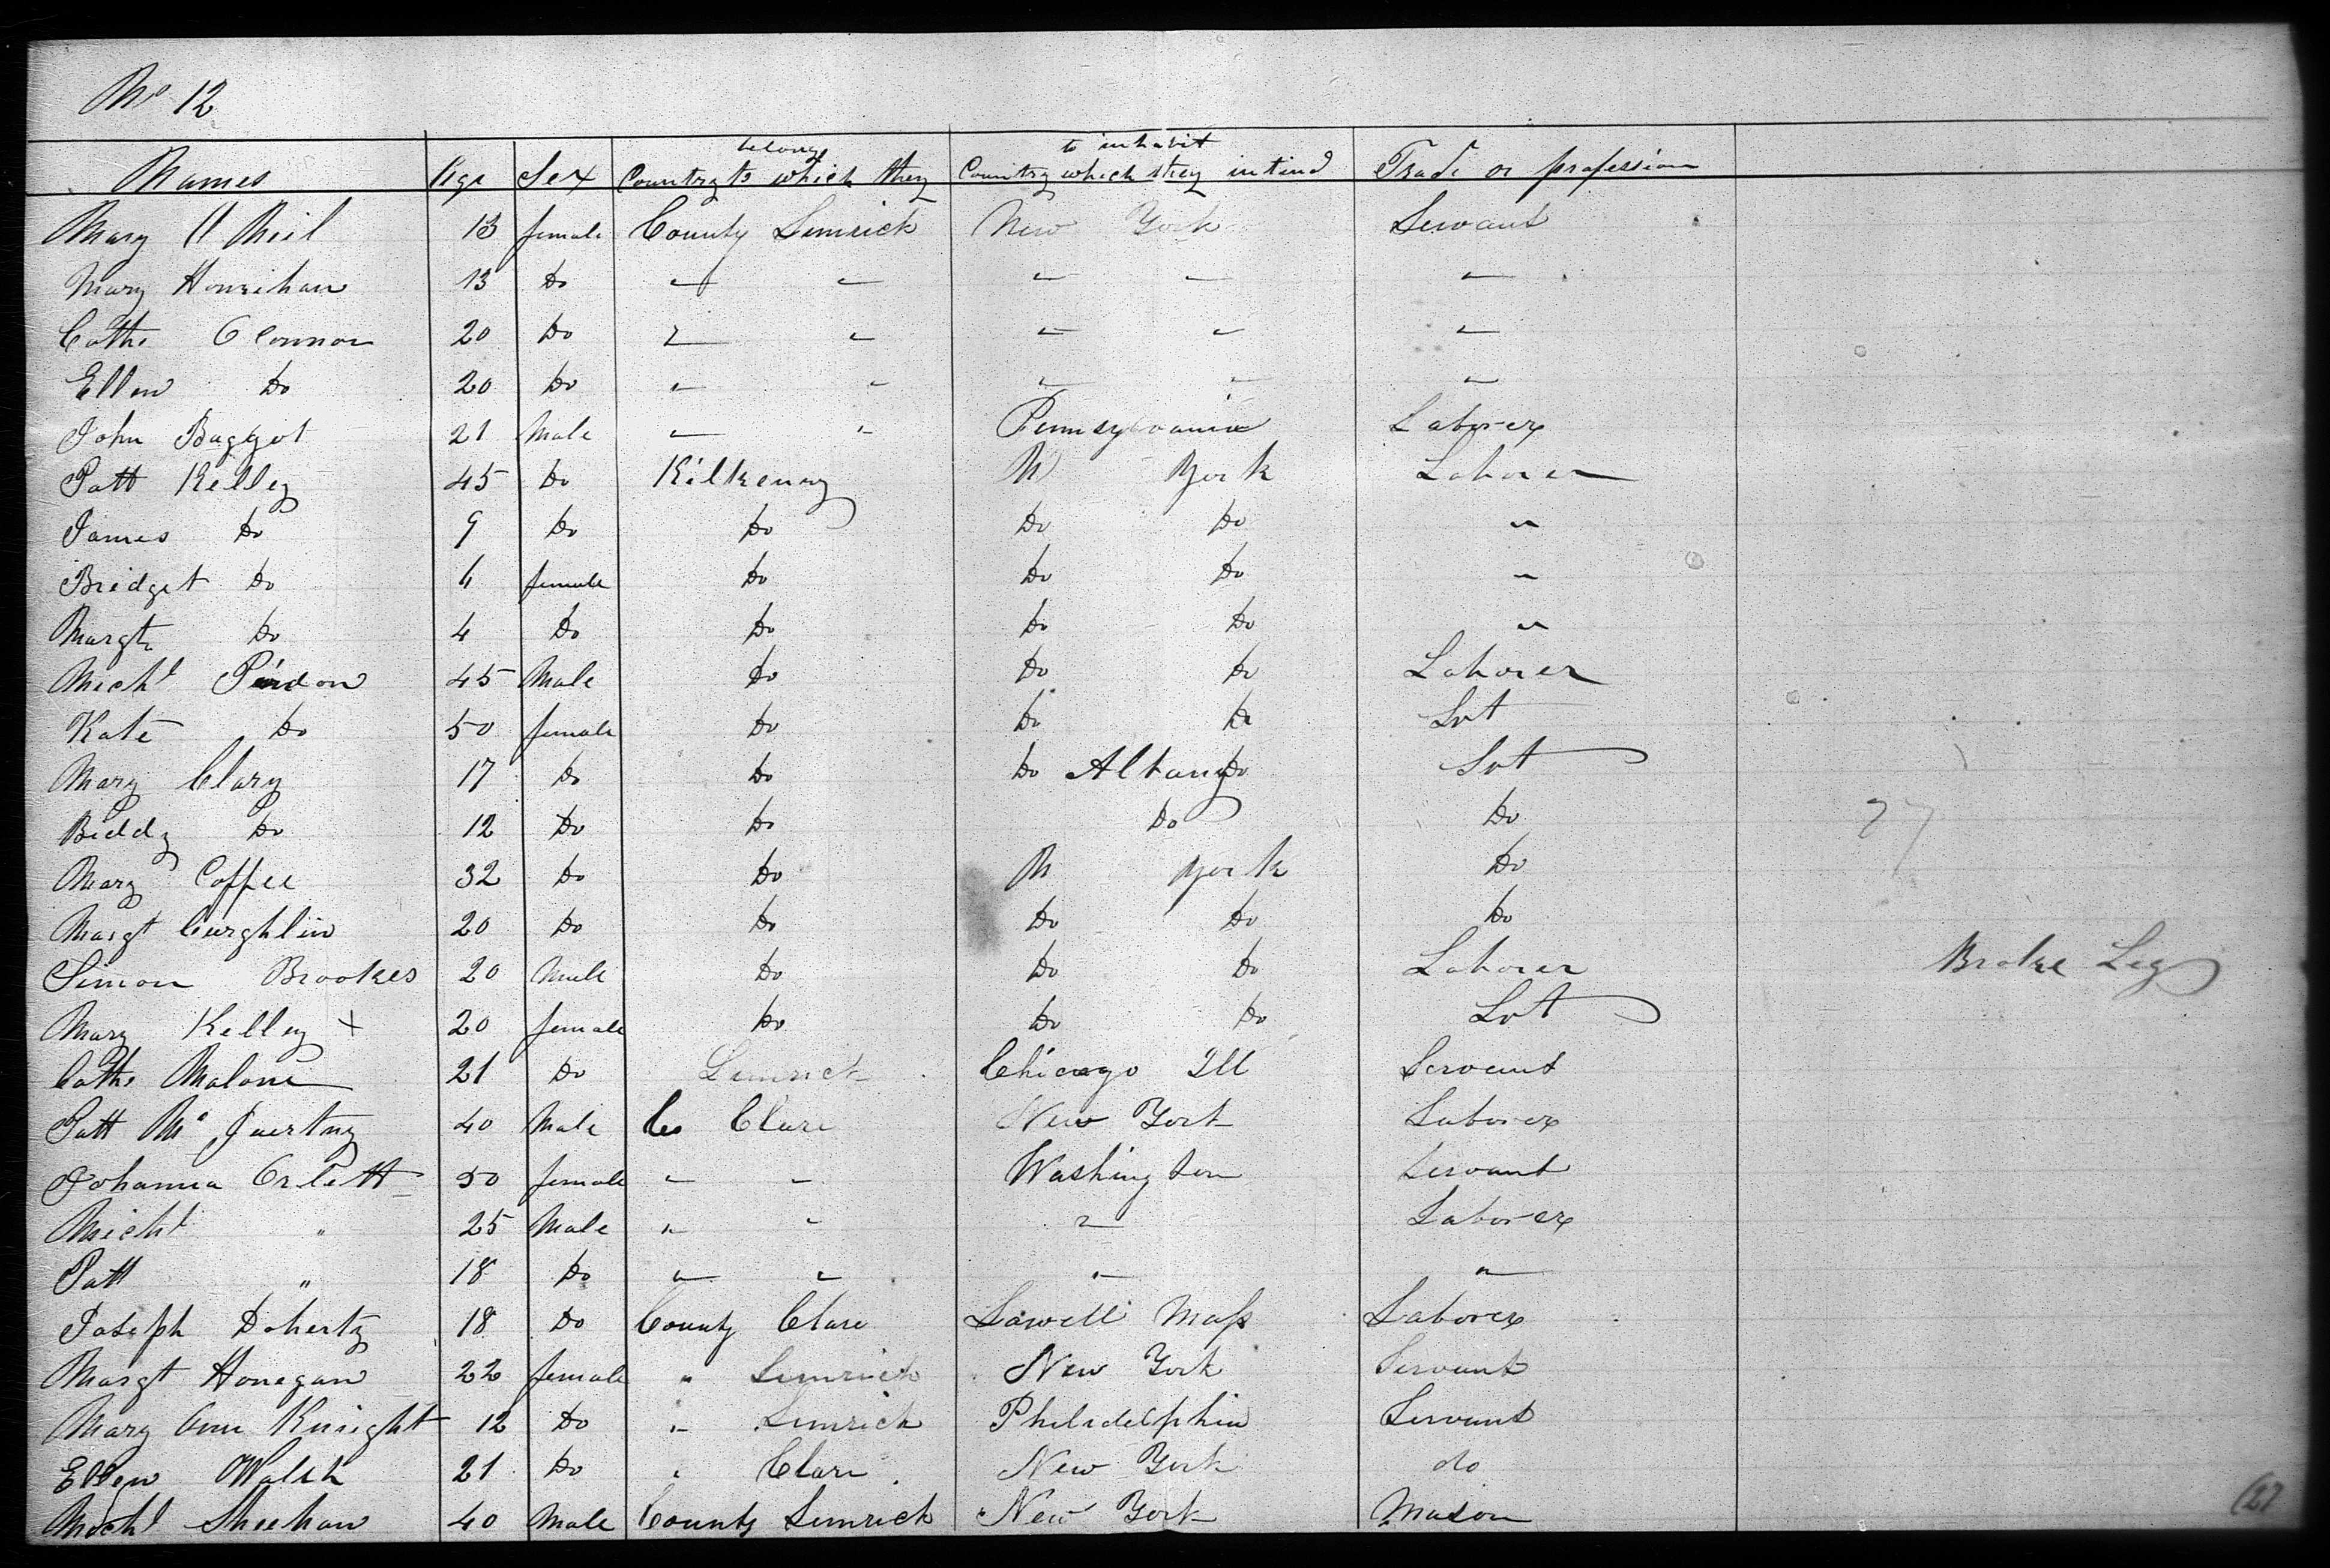 No 12
Names Age Sex Country to which they belong Country which they intend to inhabit Trade or profession
Mary O Neil 13 female County Limrick New York Servant
Mary Hourihan 13 Do " " " " "
Cathe O Connor 20 Do " " " " "
Ellen Do 20 Do " " " " "
John Baggot 21 Male " " Pennsylvania Laborer
Patt Kelley 45 Do Kilkenny N York Laborer
James Do 9 Do Do Do Do "
Bridget Do 6 female Do Do Do "
Margt Do 4 Do Do Do Do "
Michl Purdon 45 Male Do Do Do Laborer
Kate Do 50 female Do Do Do Svt
Mary Clary 17 Do Do Do Albany Do Svt
Biddy Do 12 Do Do Do Do
Mary Coffee 32 Do Do N York Do
Margt Curghlin 20 Do Do Do Do Do
Simon Brookes 20 Male Do Do Do Laborer Broke Leg
Mary Kelley + 20 female Do Do Do Svt
Cathe Malone 21 Do Limrick Chicago Ill Servant
Patt Mc 40 Male Co Clare New York Laborer
Johanna Corlett 50 female " " Washington Servant
Michl " 25 Male " " " Laborer
Patt " 18 Do " " " "
Joseph Doherty 18 Do County Clare Lowell Mass Laborer
Margt Honegan 22 female " Limrick New York Servant
Mary Ann Knight 12 Do " Limrick Philadelphia Servant
Ellen Walsh 21 Do " Clare New York do
Michl Sheehan 40 Male County Limrick New York Mason